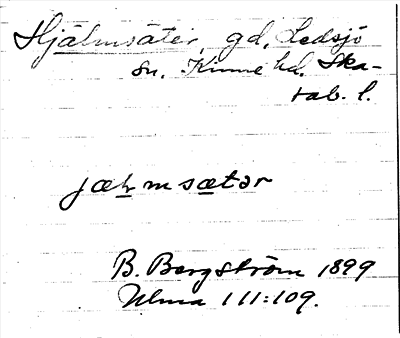 Hjälmsäter, gd, Ledsjö
sn, Kinne hd. Ska-
rab. l.
jæłmsætər
B. Bergström 1899
Ulma 111:109.